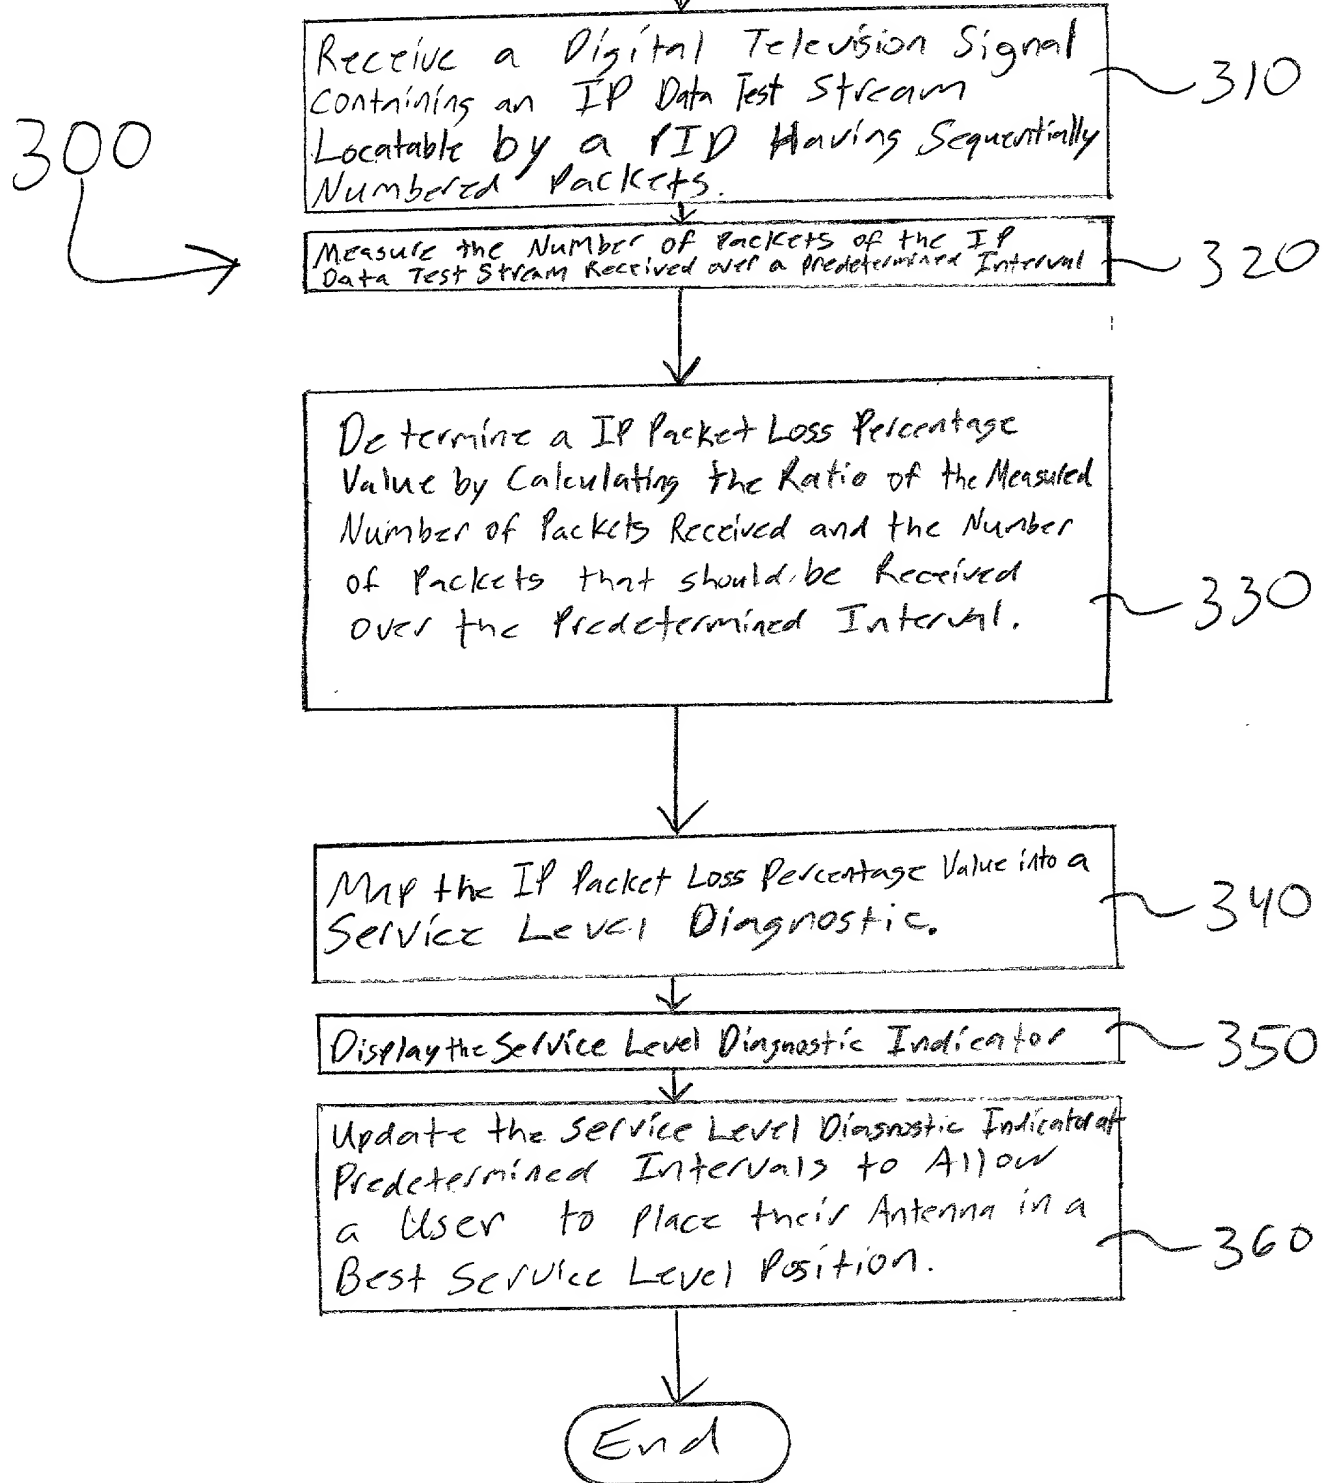 Receive a Digital Television Signal
Containing an IP Data Test Stream
Locatable by a PID Having Sequentially
Numbered Packets.
310
300
Measure the Number of Packets of the IP
Data Test Stream Received over a Predetermined Interval
320
Determine a IP Packet Loss Percentage
Value by Calculating the Ratio of the Measured
Number of Packets Received and the Number
of Packets that should be Received
over the Predetermined Interval.
330
Map the IP Packet Loss Percentage Value into a
Service Level Diagnostic.
340
Display the Service Level Diagnostic Indicator
350
Update the Service Level Diagnostic Indicator at
Predetermined Intervals to Allow
a User to Place their Antenna in a
Best Service Level Position.
360
End